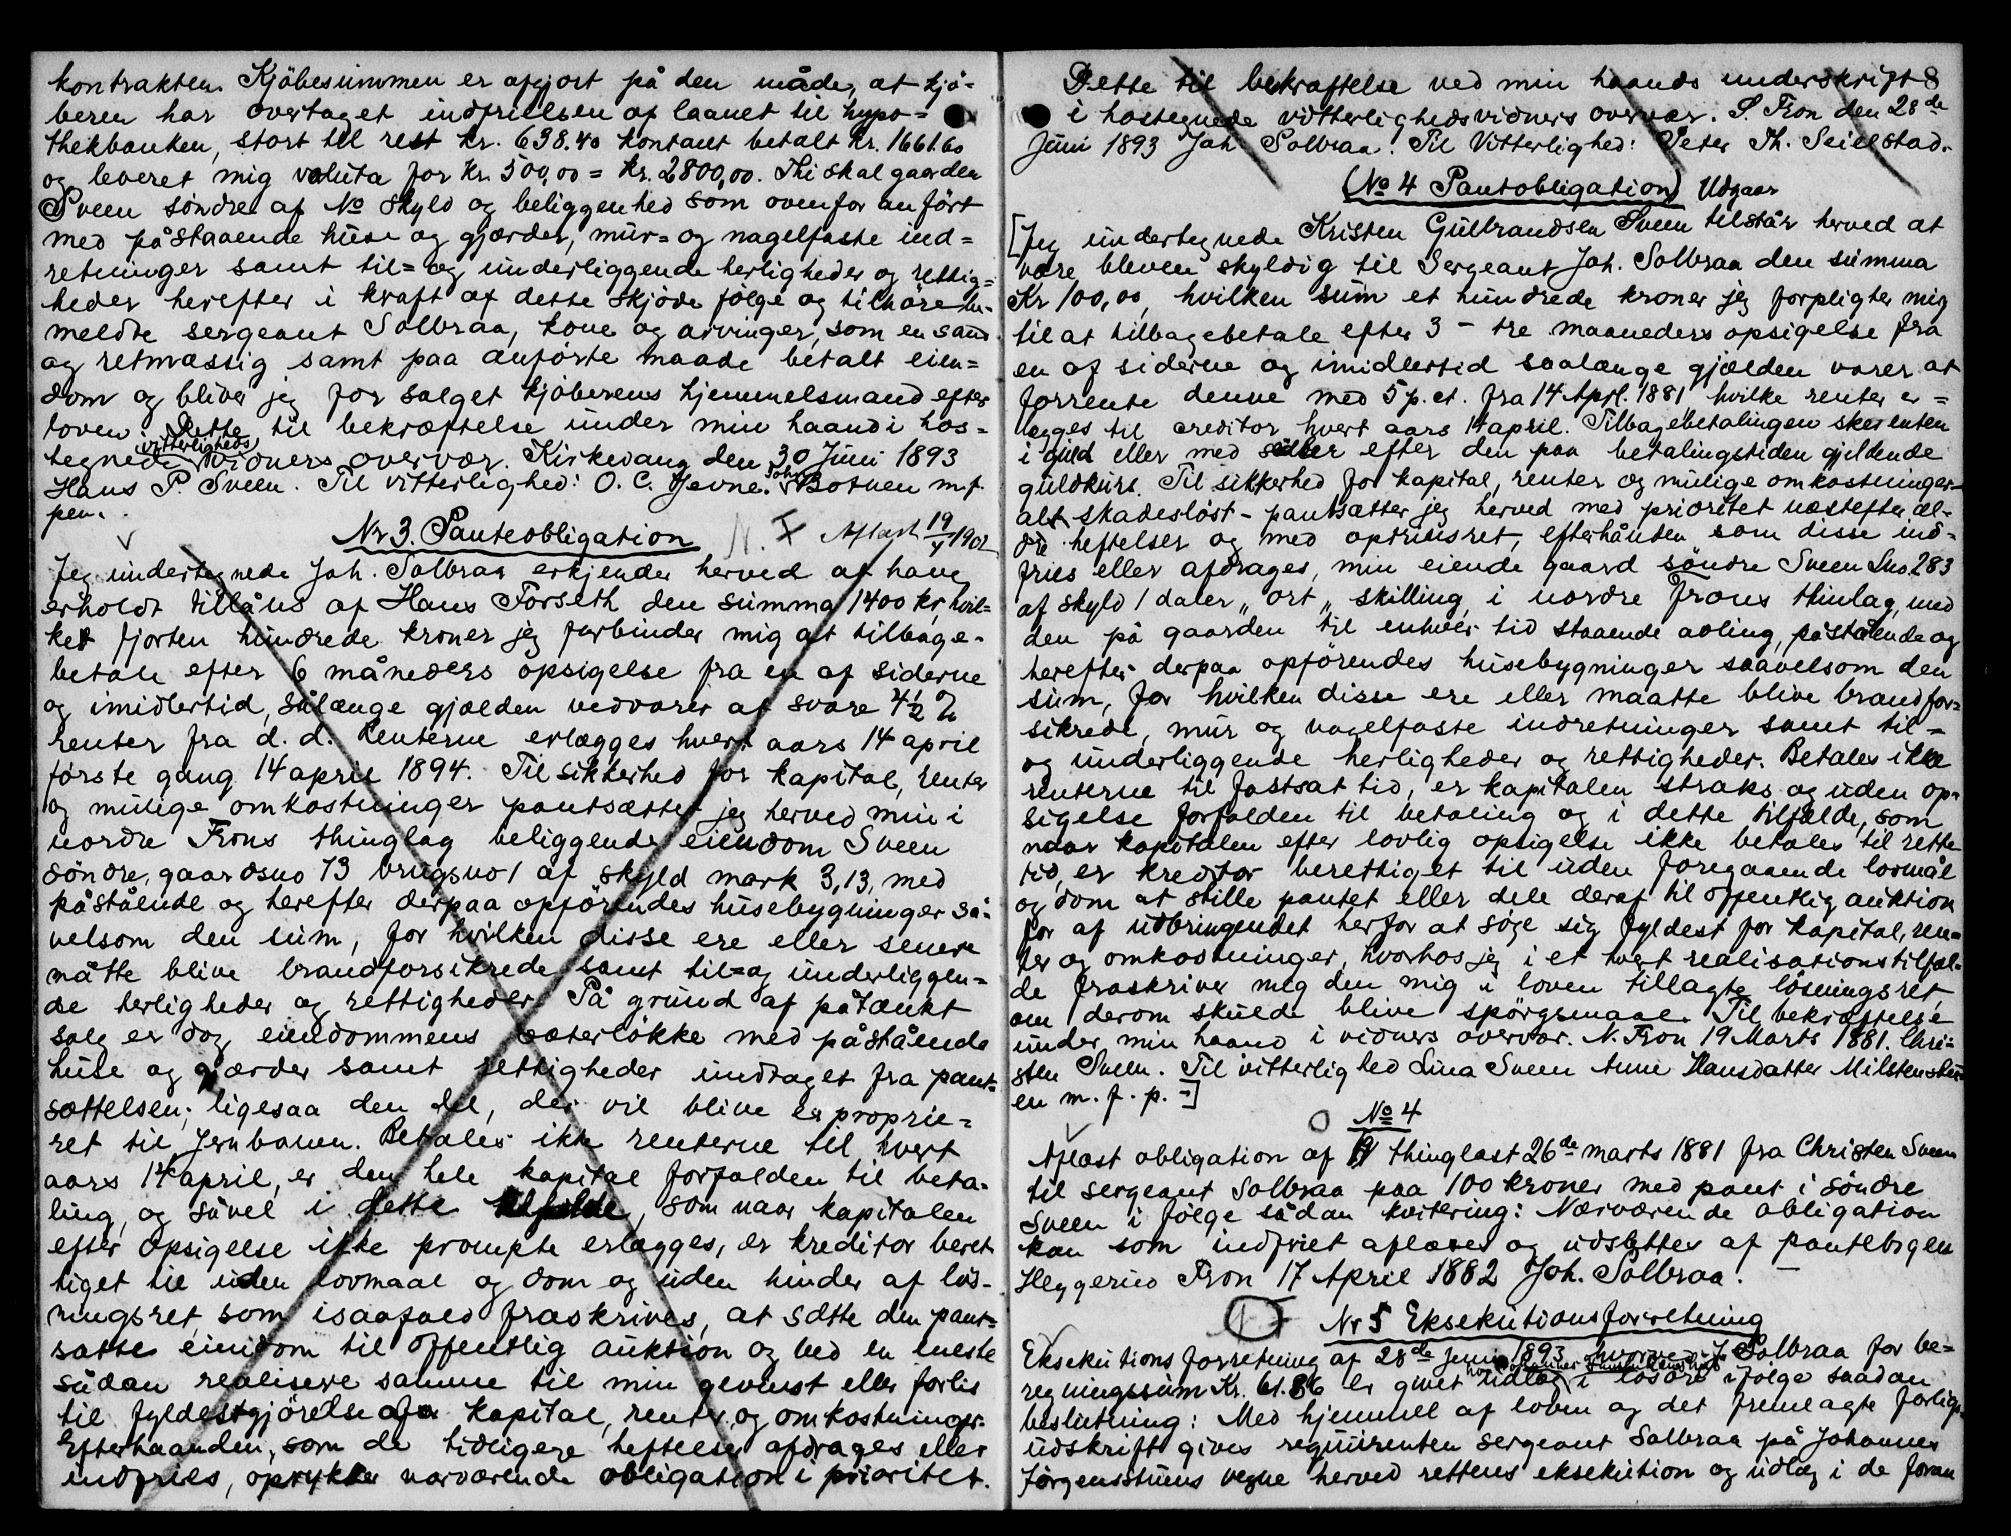 kontrakten. Kjöbesummen er afgjort på den måde, at kjö-
beren har overtaget indfrielsen af laanet til hypo-
thekbanken, stort til rest kr. 638.40 kontant betalt kr. 1661.60
og leveret mig valuta for kr. 500,00 = kr. 2800,00. Thi skal gaarden
Sveen söndre af No skyld og beliggenhed som ovenfor anfört
med påstaaende huse og gjærder, mur- og nagelfaste ind=
retninger samt til= og underliggende herligheder og rettig=
heder herefter i kraft af dette skjöde fölge og tilhöre be-
meldte sergeant Solbraa, kone og arvinger, som en sand
og retmæssig samt paa anförte maade betalt eien=
dom og bliver jeg for salget kjöberens hjemmelsmand efter
loven. Dette til bekræftelse under min haand i hos=
vitterligheds
tegnede vidners overvær. Kirkevang den 30 Juni 1893
Hans P. Sveen. Til vitterlighed: O. C. Jevne. John Botnen m.f.
pen.
Nr 3. Panteobligation N. I Aflæst 19/4 1902
Jeg undertegnede Joh. Solbraa erkjender herved at have
erholdt tillåns af Hans Forseth den summa 1400 kr, hvil=
ket fjorten hundrede kroner jeg forbinder mig at tilbage-
betale efter 6 måneders opsigelse fra en af siderne
og imidlertid, sålænge gjælden vedvarer at svare 4½ %
renter fra d. d. Renterne erlægges hvert aars 14 april
förste gang 14 april 1894. Til sikkerhed for kapital, renter
og mulige omkostninger pantsætter jeg herved min i
nordre Frons thinglag beliggende eiendom Sveen
söndre, gaardsno 73 brugsno 1 af skyld mark 3,13, med
påstående og herefter derpaa opförendes husebygninger så-
velsom den sum, for hvilken disse ere eller senere
måtte blive brandforsikrede samt til= og underliggen=
de herligheder og rettigheder. På grund af påtænkt
salg er dog eiendommens sæterlökke med påstående
huse og gjærder samt rettigheder undtaget fra pant-
sættelsen; ligesaa den del, der vil blive exproprie=
ret til Jernbanen. Betales ikke renterne til hvert
aars 14 april, er den hele kapital forfalden til beta-
ling, og såvel i dette tilfælde, som naar kapitalen
efter opsigelse ikke prompte erlægges, er kreditor beret
tiget til uden lovmaal og dom og uden hinder af lös-
ningsret, som isaafald fraskrives, at sætte den pant=
satte eiendom til offentlig auktion og ved en eneste
sådan realisere samme til min gevinst eller forlis
til fyldestgjörelse for kapital, renter og omkostninger.
Efterhaanden, som de tidligere heftelser afdrages eller
indfries, oprykker nærværende obligation i prioritet.
Dette til bekræftelse ved min haands underskrift 8
i hostegnede vitterlighedsvidners overvær. S. Fron den 28de
Juni 1893 Joh. Solbraa. Til Vitterlighed: Peter Th. Seielstad.
(No 4 Pantobligation) Udgaar
[Jeg undertegnede Kristen Gulbrandsen Sveen tilstår herved at
være bleven skyldig til Sergeant Joh. Solbraa den summa
Kr 100,00, hvilken sum et hundrede kroner jeg forpligter mig
til at tilbagebetale efter 3 - tre maaneders opsigelse fra
en af siderne og imidlertid saalænge gjælden varer at
forrente denne med 5 p. ct. fra 14 April 1881 hvilke renter er=
lægges til creditor hvert aars 14 april. Tilbagebetalingen sker enten
i guld eller med sedler efter den paa betalingstiden gjeldende
guldkurs. Til sikkerhed for kapital, renter og mulige omkostninger-
alt skadeslöst - pantsætter jeg herved med prioritet næstefter æl-
dre heftelser og med opriksret, efterhånden som disse ind=
fries eller afdrages, min eiende gaard söndre Sveen Lno 283
af skyld 1 daler „ ort „ skilling, i nordre Frons thinlag, med
den på gaarden til enhver tid staaende avling, påstående og
herefter derpaa opförendes husebygninger saavelsom den
sum, for hvilken disse ere eller maatte blive brandfor=
sikrede, mur og nagelfaste indretninger samt til=
og underliggende herligheder og rettigheder. Betales ikke
renterne til fastsat tid, er kapitalen straks og uden op-
sigelse forfalden til betaling og i dette tilfælde, som
naar kapitalen efter lovlig opsigelse ikke betales til rette
tid, er kreditor berettiget til uden foregaaende lovmål
og dom at stille pantet eller dele deraf til offentlig auktion
for af udbringendet herfor at söge sig fyldest for kapital, ren=
ter og omkostninger, hvorhos jeg i et hvert realisationstilfæl-
de fraskriver mig den mig i loven tillagte lösningsret,
om derom skulde blive spörgsmaal. Til bekræftelse
under min haand i vidners overvær. N. Fron 19 Marts 1881. Chri-
sten Sveen. Til vitterlighed Lina Sveen Anne Hansdatter
en m. f. p. -]
No 4
Aflæst obligation af 19 thinglæst 26de marts 1881 fra Christen Sveen
til sergeant Solbraa paa 100 kroner med pant i söndre
Sveen i fölge sådan kvitering: Nærværende obligation
kan som indfriet aflæses og udslettes af pantebogen
Heggerud Fron 17 April 1882 Joh. Solbraa.
Nr 5 Eksekutionsforretning
Eksekutionsforretning af 28de Juni 1893 hvorved J Solbraa for be=
regningssum Kr. 61.86 er givet udlæg i lösöre ifölge saadan
beslutning: Med hjemmel af loven og det fremlagte forligs-
udskrift gives requirenten sergeant Solbraa på Johannes
Jörgensstuens vegne herved rettens eksekution og udlæg i de foran